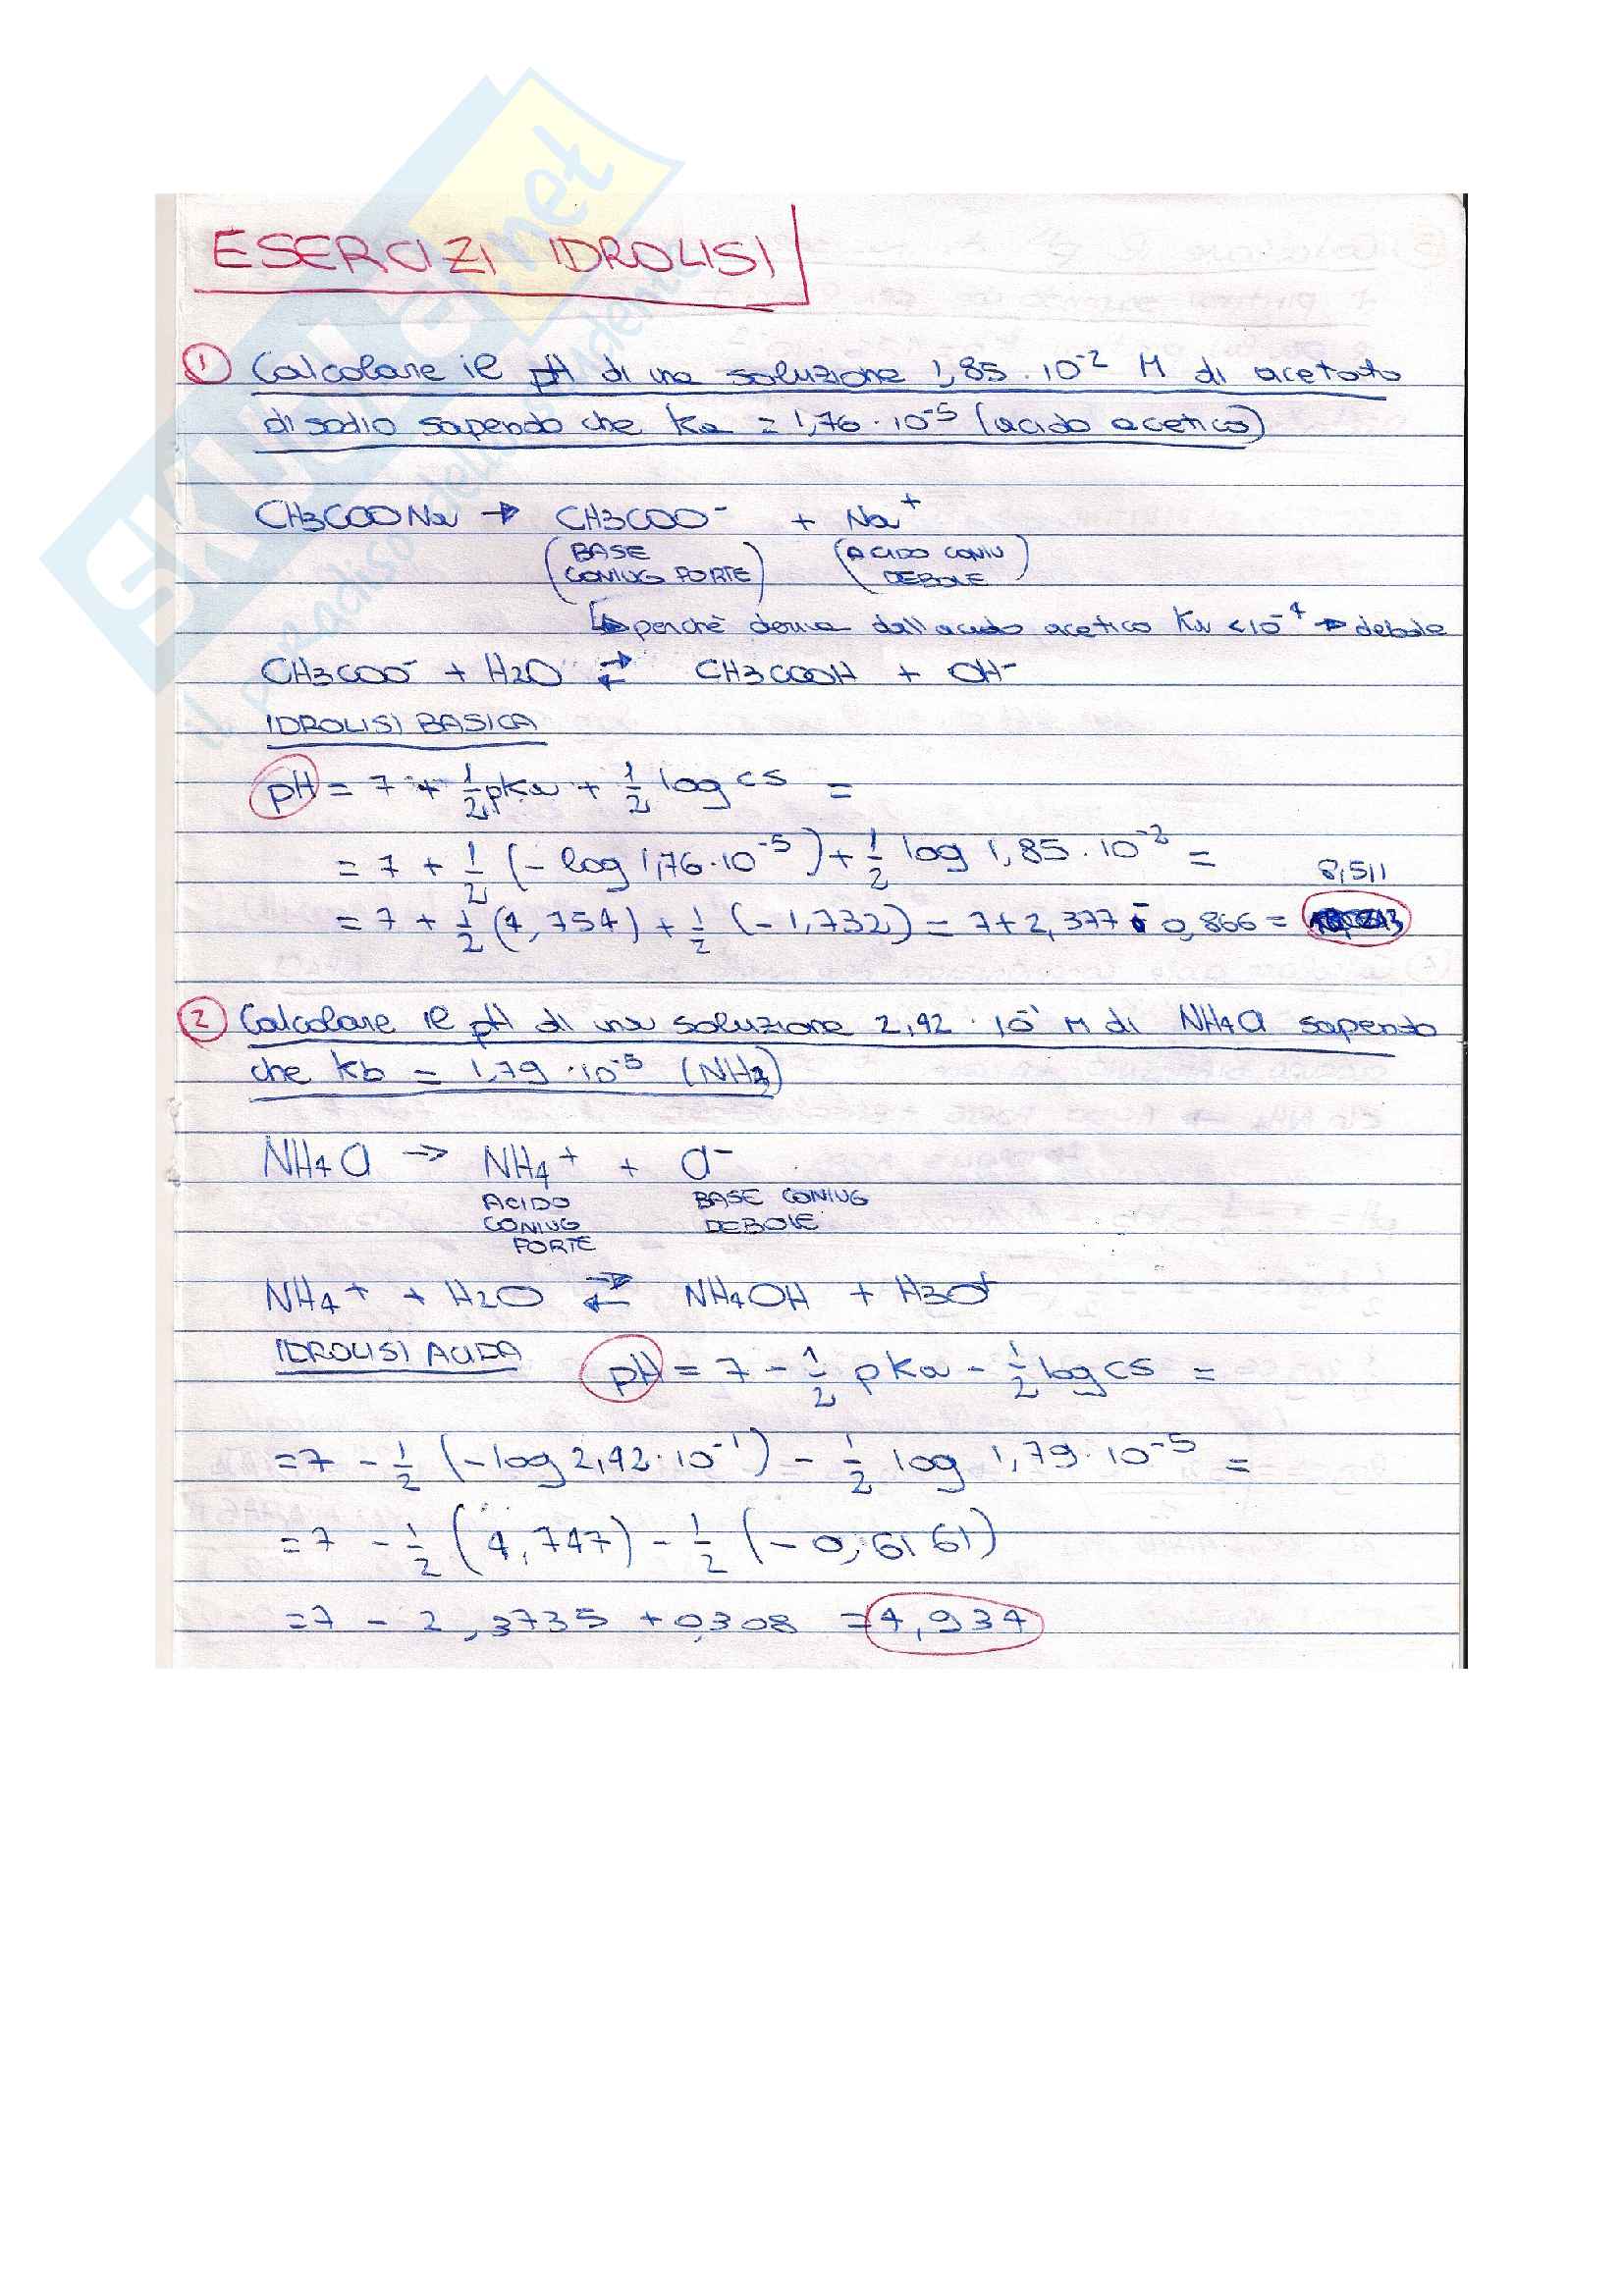 ESERCIZI IDROLISI
① Calcolare il pH di una soluzione 1,85 · 10⁻² M di acetato
di sodio sapendo che Ka = 1,76 · 10⁻⁵ (acido acetico)
CH3COONa → CH3COO⁻ + Na⁺
(BASE CONIUG FORTE) (ACIDO CONIU DEBOLE)
↳ perchè deriva dall'acido acetico Ka < 10⁻⁴ → debole
CH3COO⁻ + H2O ⇄ CH3COOH + OH⁻
IDROLISI BASICA
pH = 7 + 1/2 pKa + 1/2 log cs =
= 7 + 1/2 (- log 1,76·10⁻⁵) + 1/2 log 1,85 · 10⁻² =
8,511
= 7 + 1/2 (4,754) + 1/2 (-1,732) = 7+2,377 - 0,866 =
② Calcolare il pH di una soluzione 2,42 · 10⁻¹ M di NH4Cl sapendo
che Kb = 1,79 · 10⁻⁵ (NH3)
NH4Cl → NH4⁺ + Cl⁻
ACIDO BASE CONIUG
CONIUG DEBOLE
FORTE
NH4⁺ + H2O ⇄ NH4OH + H3O⁺
IDROLISI ACIDA pH = 7 - 1/2 pKa - 1/2 log cs =
= 7 - 1/2 (- log 2,42 · 10⁻¹) - 1/2 log 1,79 · 10⁻⁵ =
= 7 - 1/2 (4,747) - 1/2 (-0,6161)
= 7 - 2,3735 + 0,308 = 4,934
SKUOLA.net